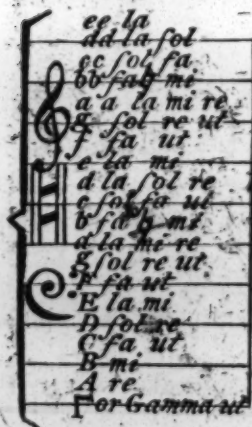 ee la
dd la ſol
cc ſol fa
bb fa ♮ mi
a a la mi re
g ſol re ut
f fa ut
e la mi
d la ſol re
c ſol fa ut
b fa ♮ mi
a la mi re
g ſol re ut
F fa ut
E la mi
D ſol re
C fa ut
B mi
A re
Γ or Gamma ut